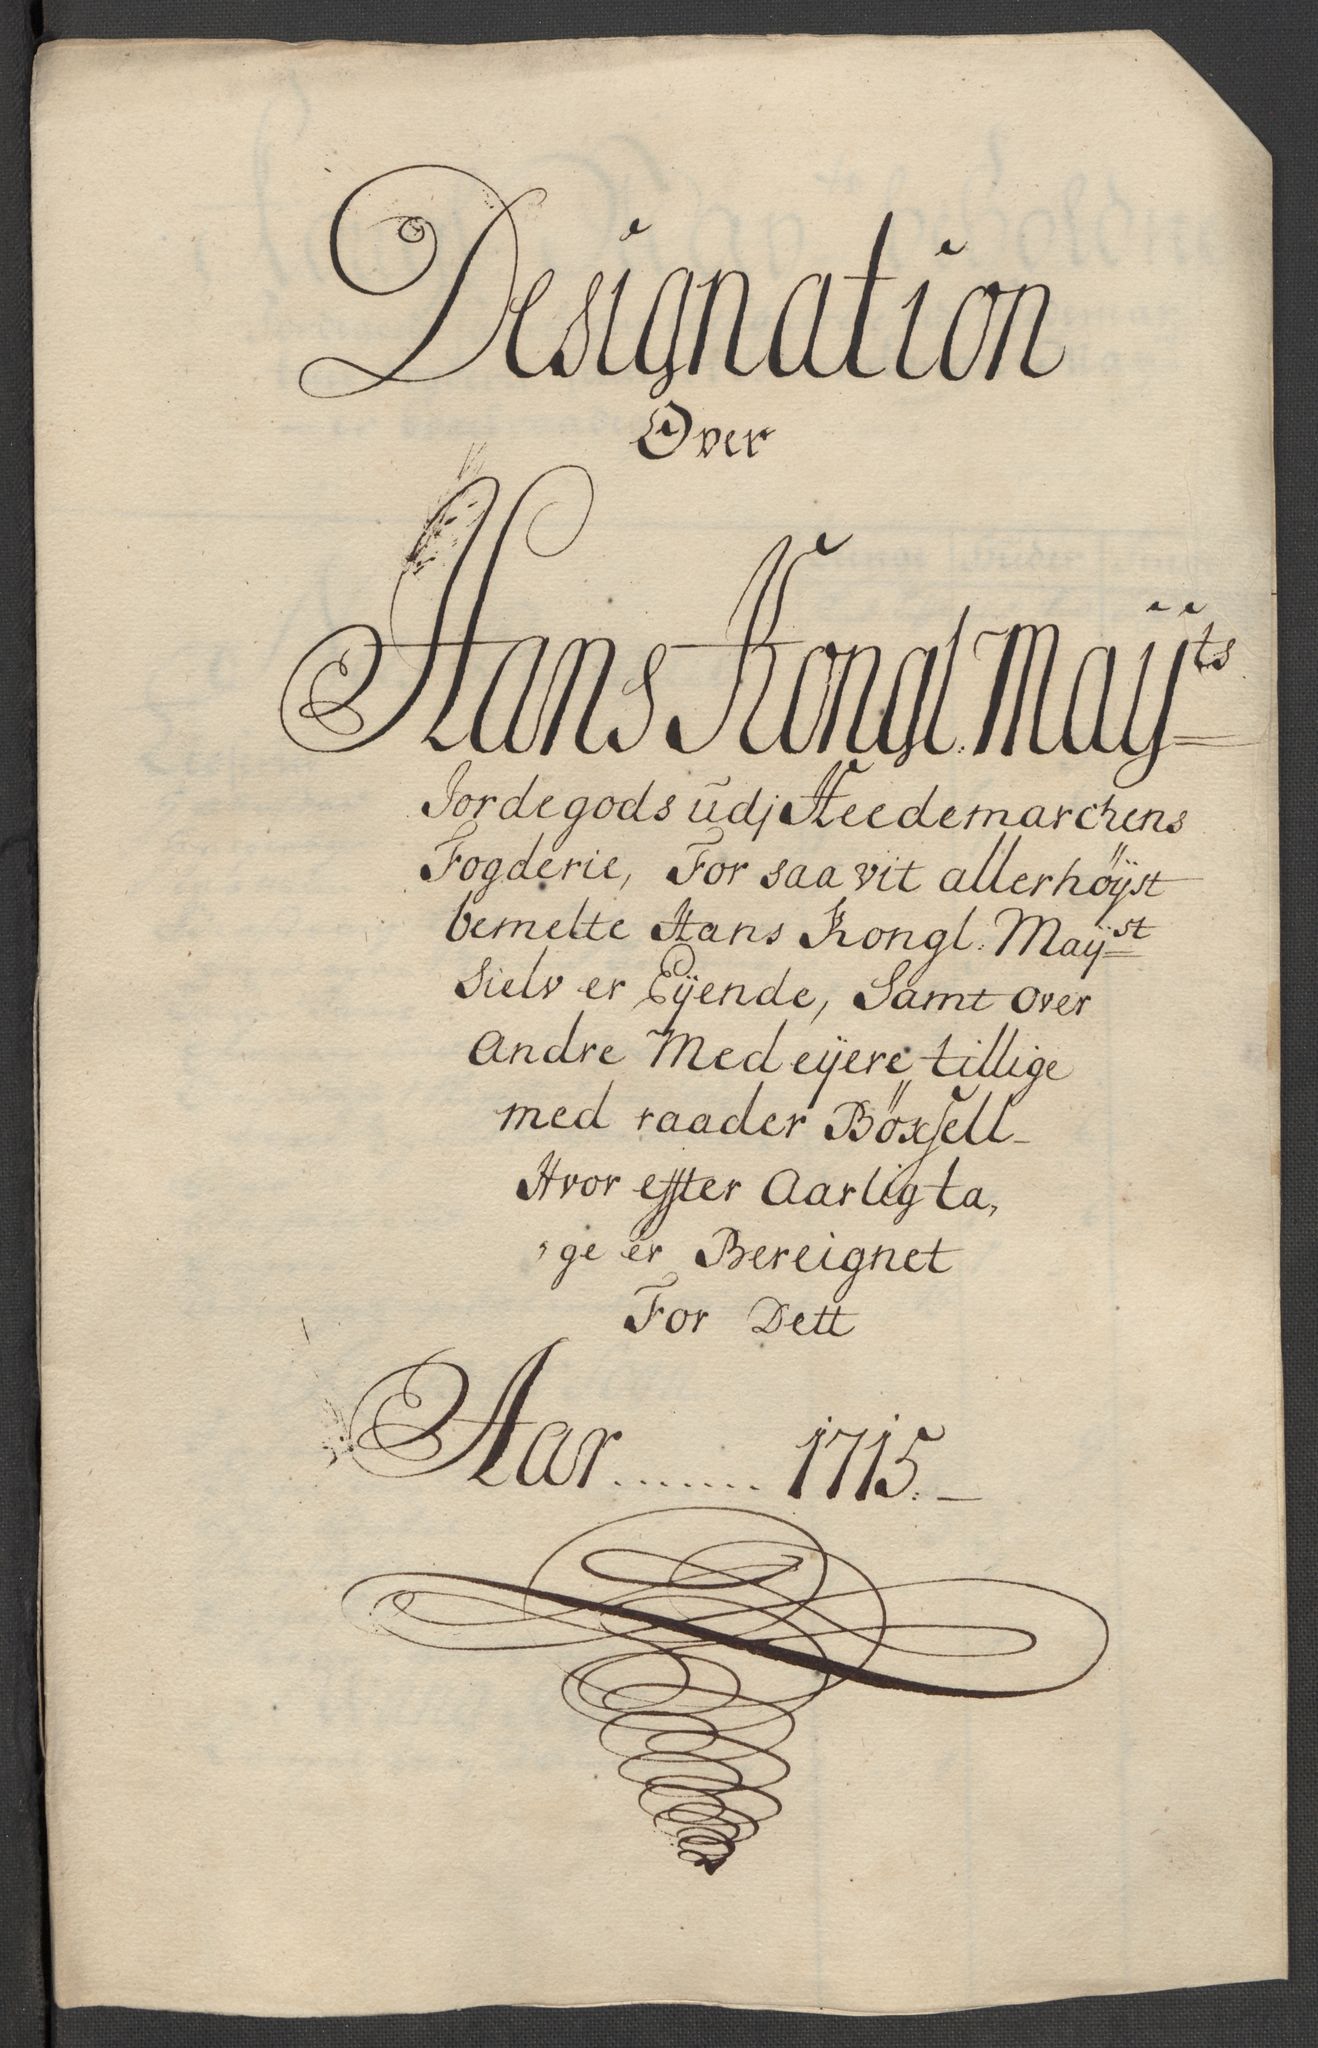 Designation
Over
Hans Kongl. Maÿts
Jordegods udj Heedemarchens
Fogderie, For saa vit allerhöÿst
bemelte Hans Kongl. Maÿst
Sielv er Eÿende, Samt over
Andre Med eÿere tillige
med raader Böxsell
Hvor effter Aarlig ta,
,ge er Bereignet
For Dett
Aar ....... 1715.